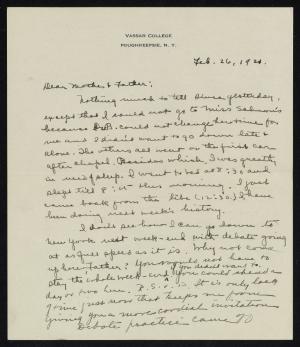 VASSAR COLLEGE
POUGHKEEPSIE, N. Y.
Feb. 26, 1921.
Dear Mother & Father:
Nothing much to tell since yesterday,
except that I could not go to Miss Salmon's
because could not change her time for
me and I didn't want to go down late &
alone. The others all went on the first car
after chapel. Besides which, I was greatly
in need of sleep. I went to bed at 8:30 and
slept till 8:15 this morning. I just
came back from the libe (12:30) I have
been doing next week's history.
I don't see how I can go down to
New York next week-end with debate going
at as full speed as it is. Why not come
up here, Father? You would not have to
stay the whole week-end if you didn't want to.
You could spend a
day or two here. P.S. It is only lack
of time just now that keeps me from
giving you a more cordial invitation
Debate practice came